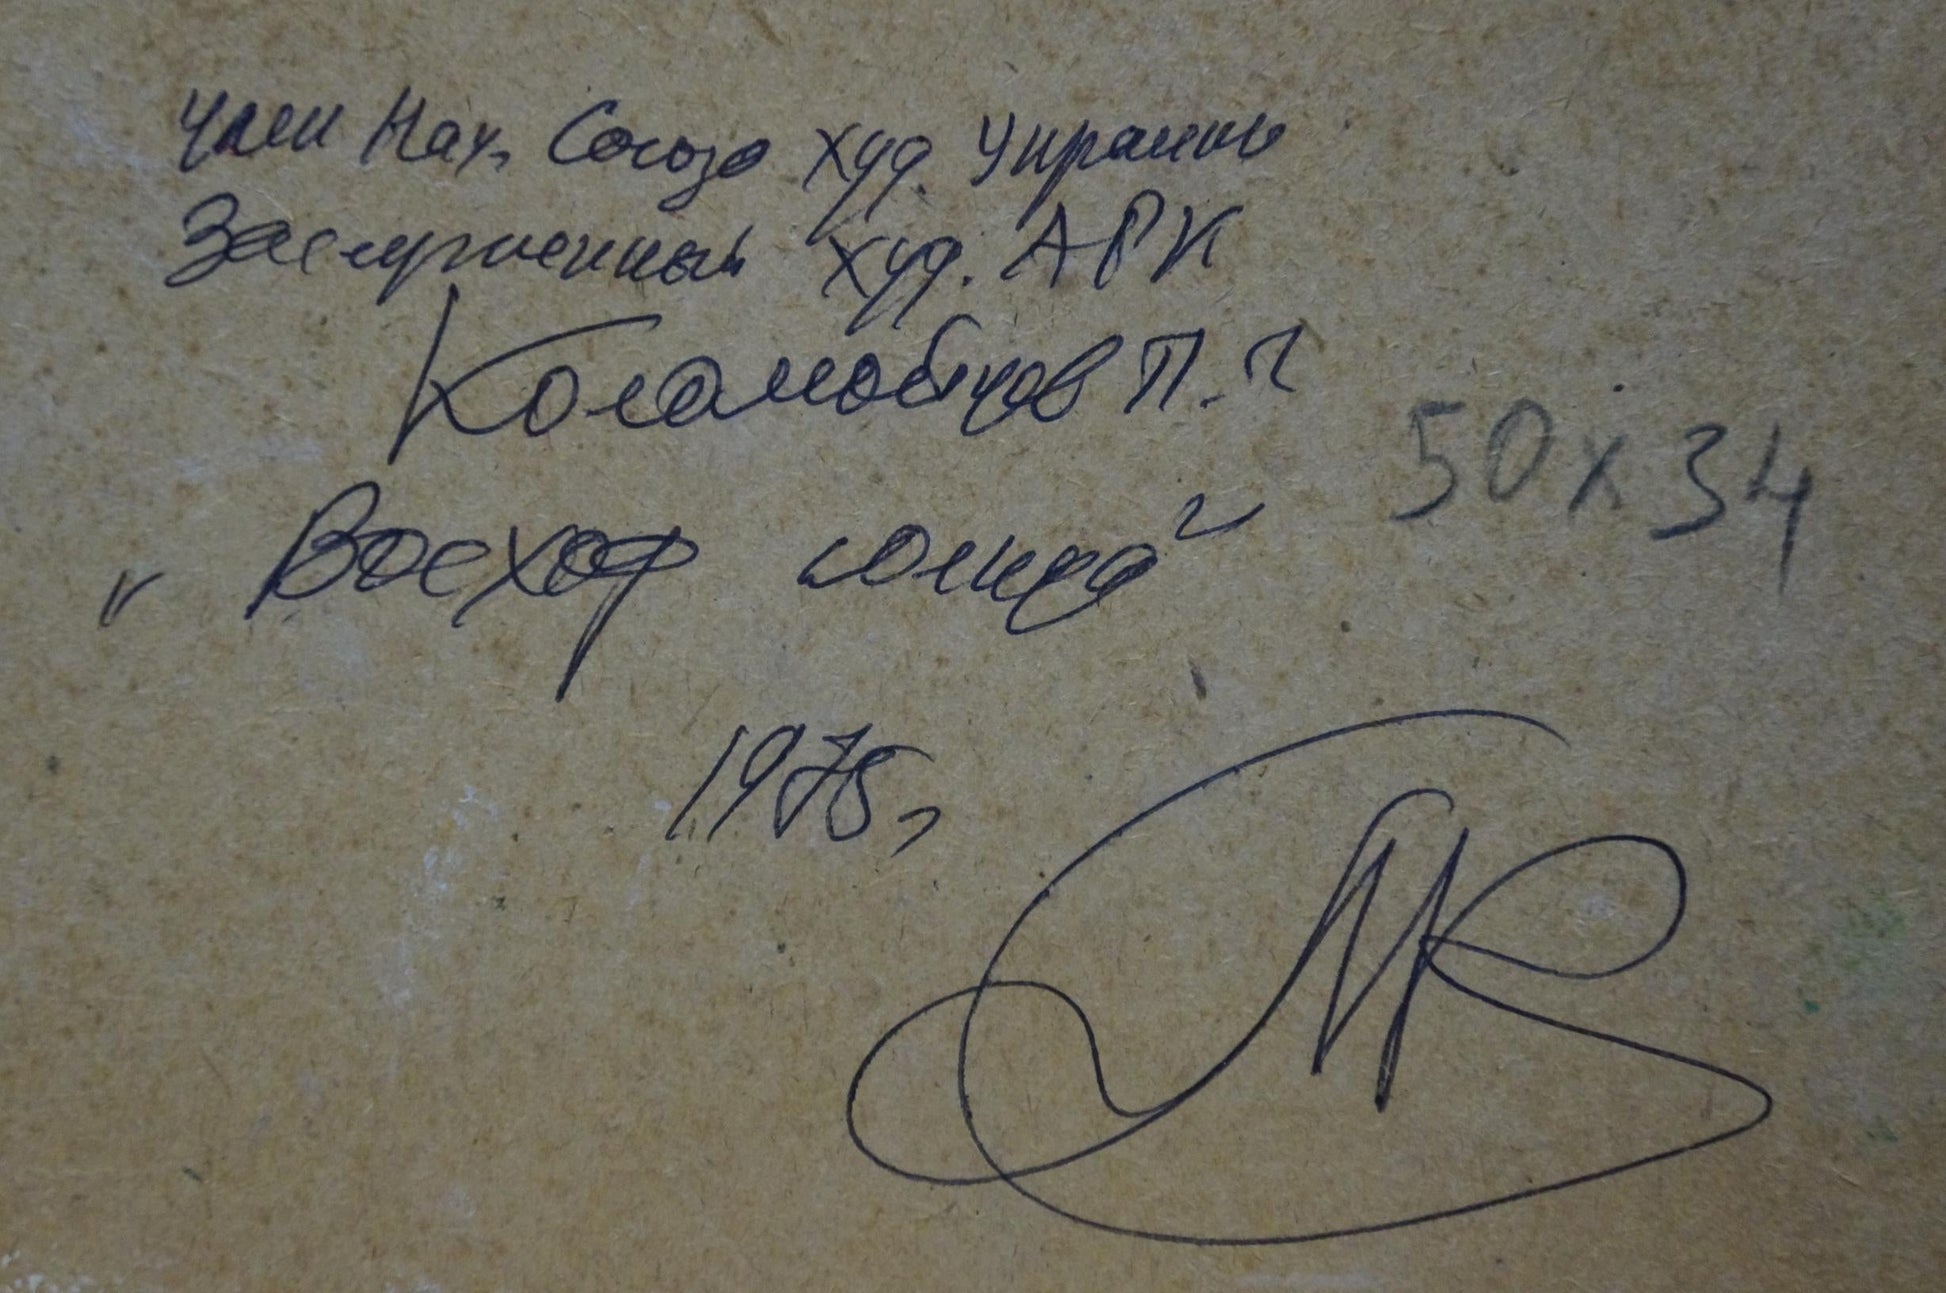 Член Нац. Союза худ. Украины
Заслуженный худ. АРК
Коламойцев П. Г
50 х 34
„Восход солнца”
1975г